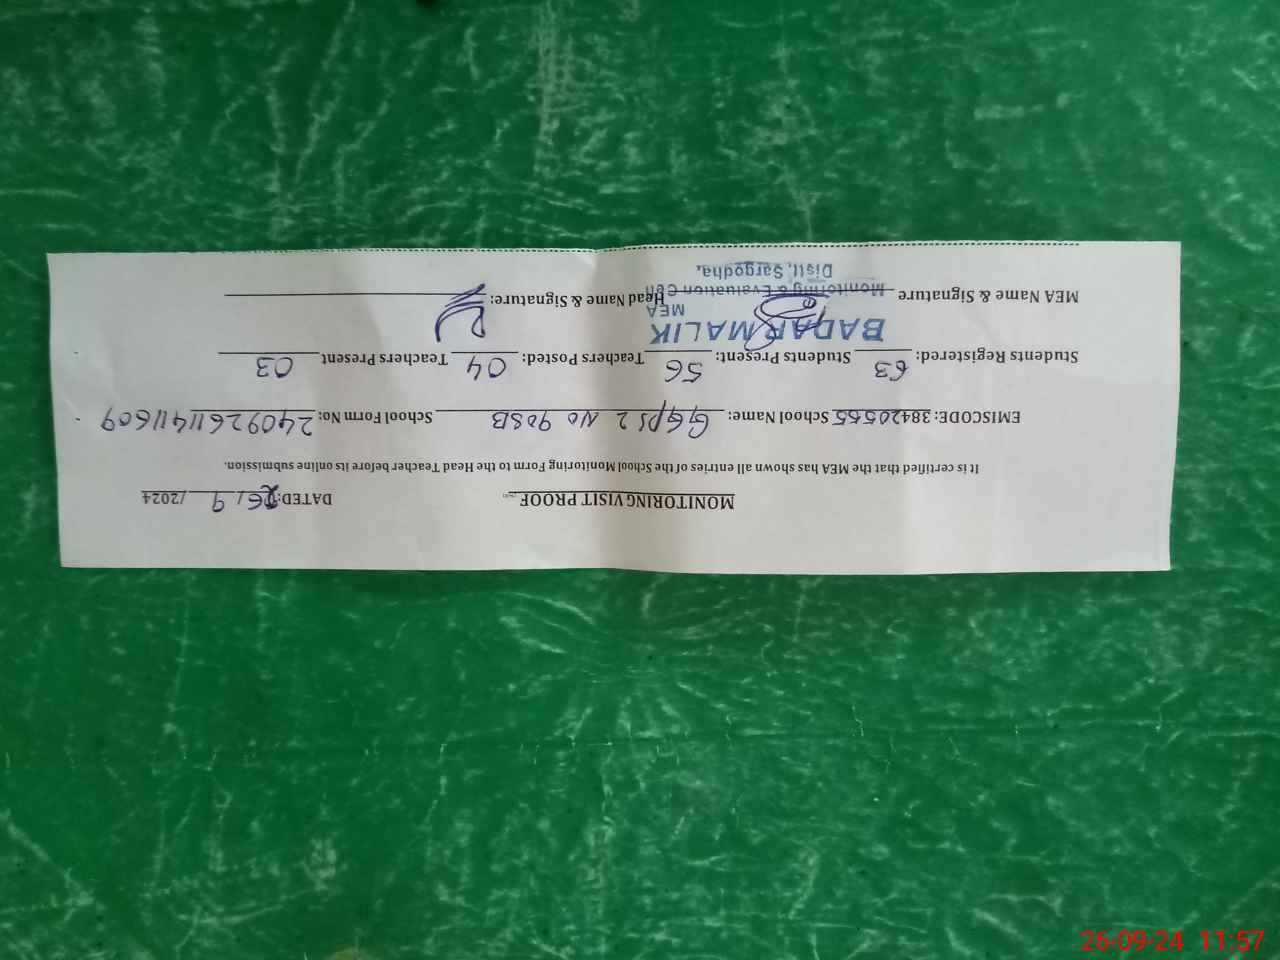 MONITORING VISIT PROOF
DATED: 26/9/2024
It is certified that the MEA has shown all entries of the School Monitoring Form to the Head Teacher before its online submission.
EMISCODE: 38420565 School Name: GGPS 2 NO 90SB School Form No: 240926114111609
Students Registered: 63 Students Present: 56 Teachers Posted: 04 Teachers Present 03
BADAR MALIK
MEA
MEA Name & Signature Head Name & Signature:
Monitoring & Evaluation Cell
Distt, Sargodha,
26-09-24 11:57